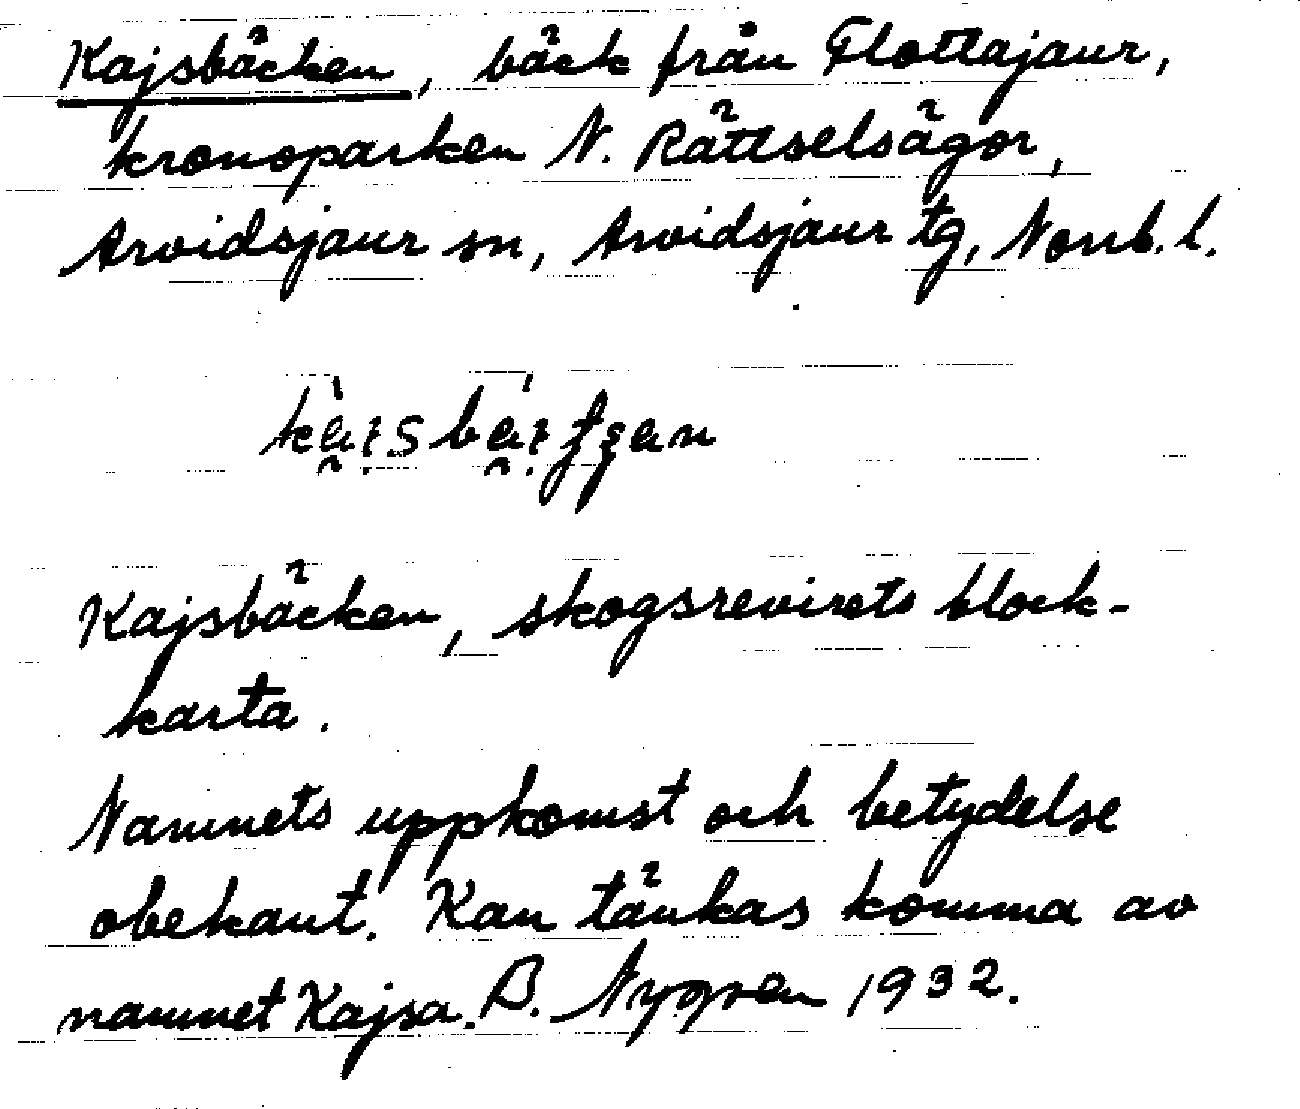 Kajsbäcken, bäck från Flottajaur,
kronoparken N. Rättselsägor,
Arvidsjaur sn, Arvidsjaur tg, Norrb. l.
Kajsbäcken, skogsrevirets block-
karta.
Namnets uppkomst och betydelse
obekant. Kan tänkas komma av
namnet Kajsa. B. Nygren 1932.